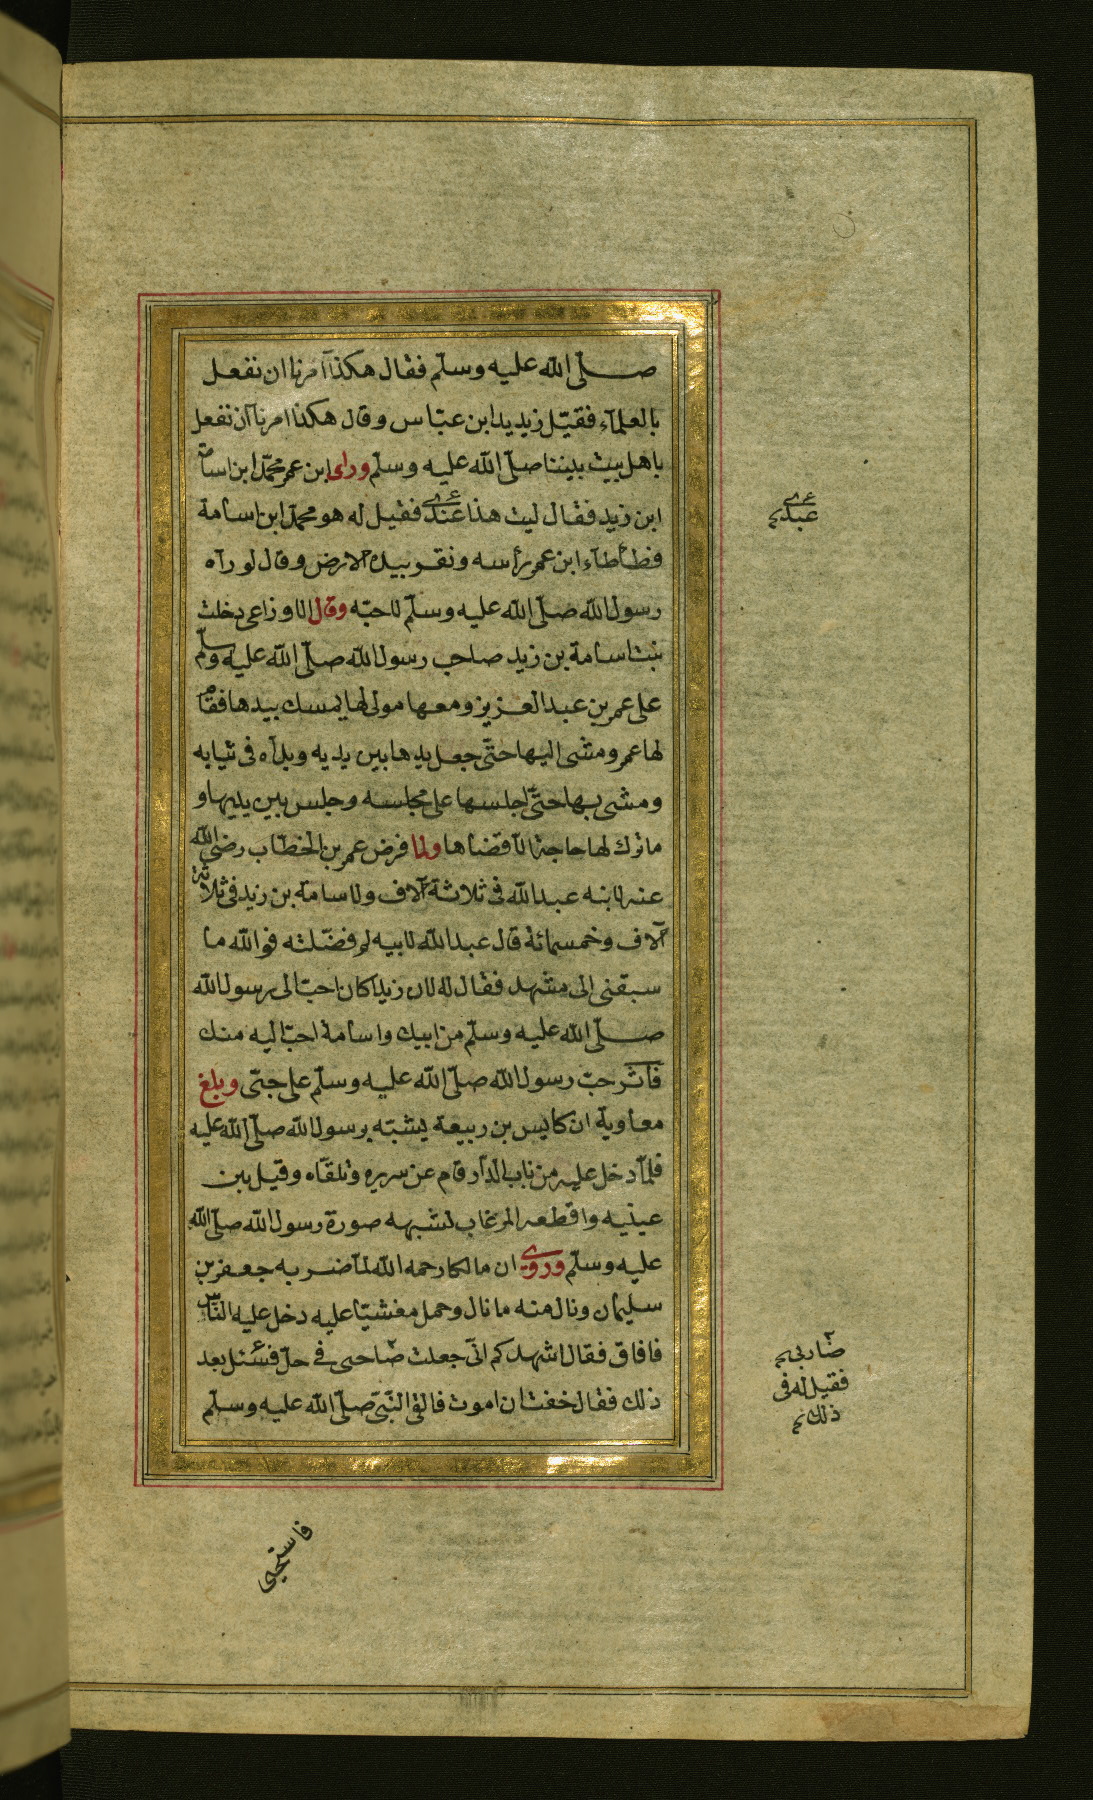 صلّى الله عليه وسلّم فقال هكذا امرنا ان نفعل
بالعلماء فقبّل زيد يد ابن عبّاس وقال هكذا امرنا ان نفعل
باهل بيت نبينا صلّى الله عليه وسلّم وراى ابن عمر محمّد ابن اسامة
ابن زيد فقال ليت هذا عندى فقيل له هو محمّد ابن اسامة
فطأطاء ابن عمر رأسه ونقر بيده الارض وقال لو رآه
رسول الله صلّى الله عليه وسلّم لاحبّه وقال الاوزاعى دخلت
بنت اسامة بن زيد صاحب رسول الله صلّى الله عليه وسلّم
على عمر بن عبد العزيز ومعها مولى لها يمسك بيدها فقام
لها عمر ومشى اليها حتّى جعل يدها بين يديه ويداه فى ثيابه
ومشى بها حتّى اجلسها على مجلسه وجلس بين يديها و
ماترك لها حاجة الا قضاها ولما فرض عمر بن الخطّاب رضى الله
عنه لابنه عبد الله فى ثلاثة آلاف ولاسامة بن زيد فى ثلاثة
آلاف وخمسمائة قال عبد الله لابيه لم فضّلته فوالله ما
سبقنى الى مشهد فقال له لان زيدا كان احبّ الى رسول الله
صلّى الله عليه وسلّم من ابيك واسامة احبّ اليه منك
فآثرت حبّ رسول الله صلّى الله عليه وسلّم على حبّى وبلغ
معاوية ان كابس بن ربيعة يشبّه برسول الله صلّى الله عليه
فلمّا دخل عليه من باب الدّار قام عن سريره وتلقّاه وقبل بين
عينيه واقطعه المرغاب لشبهه صورة رسول الله صلّى الله
عليه وسلّم وروى ان مالكا رحمه الله لمّا ضربه جعفر بن
سليمان ونال منه ما نال وحمل مغشيّا عليه دخل عليه النّاس
فافاق فقال اشهدكم انّى جعلت صاحبى فى حلّ فسئل بعد
ذلك فقال خفت ان اموت فالقى النّبىّ صلّى الله عليه وسلّم
عبدى
ضاربى
فقيل له فى
ذلك
فاستحيى